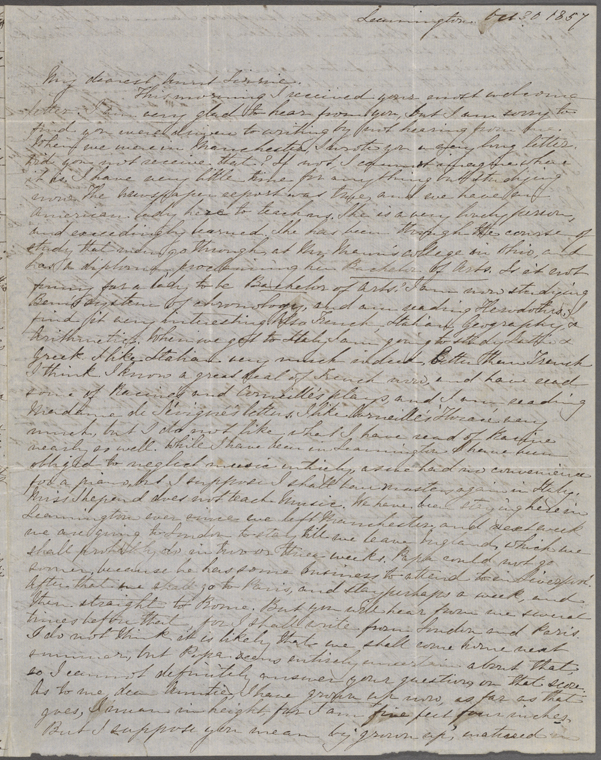 Leamington Oct 30 1857
My dearest Aunt Lizzie,
This morning I received your most welcome
very glad to hear from you, but I am sorry to
find you were driven to writing by not hearing from me.
When we were in Manchester I wrote you a very long letter,
did you not receive that? If not I cannot imagine where
it is. I have very little time for anything but studying
now. The newspaper report was true, and we have an
American lady here to teach us. She is a very lovely person,
and exceedingly learned. She has been through the course of
study that men go through, at Mr Mann's college in Ohio, and
has a diploma proclaiming her Bachelor of Arts. Is it not
funny for a lady to be Bachelor of Arts? I am now studying
Bem's system of chronology, and am reading Herodotus. I
find it very interesting. Also French, Italian, Geography, &
Arithmetic. When we get to Italy I am going to study Latin &
Greek. I like Italian very much indeed. Better than French
I think. I know a great deal of French now, and have read
some of Racine's and Corneille's plays and I am reading
Madame de Sévigné's letters. I like Corneille's Horace very
much, but I do not like what I have read of Racine
nearly so well. While I have been in Leamington I have been
obliged to neglect music entirely, as we had no convenience
for a piano, but I suppose I shall have masters again in Italy.
Miss Shepard does not teach Music. We have been staying here in
Leamington ever since we left Manchester, and next week
we are going to London to stay till we leave England, which we
shall probably do in two or three weeks. Papa could not go
sooner, because he has some business to attend to in Liverpool.
After that we shall go to Paris, and stay perhaps a week, and
then straight to Rome. But you will hear from me several
times before that, for I shall write from London and Paris.
I do not think it is likely that we shall come home next
summer, but Papa seems entirely uncertain about that
so I cannot definitely answer your question on that score.
As to me, dear Auntie, I have grown up now, as far as that
goes, I mean in height for I am five feet four inches.
But I suppose you mean by "grown up", matured in